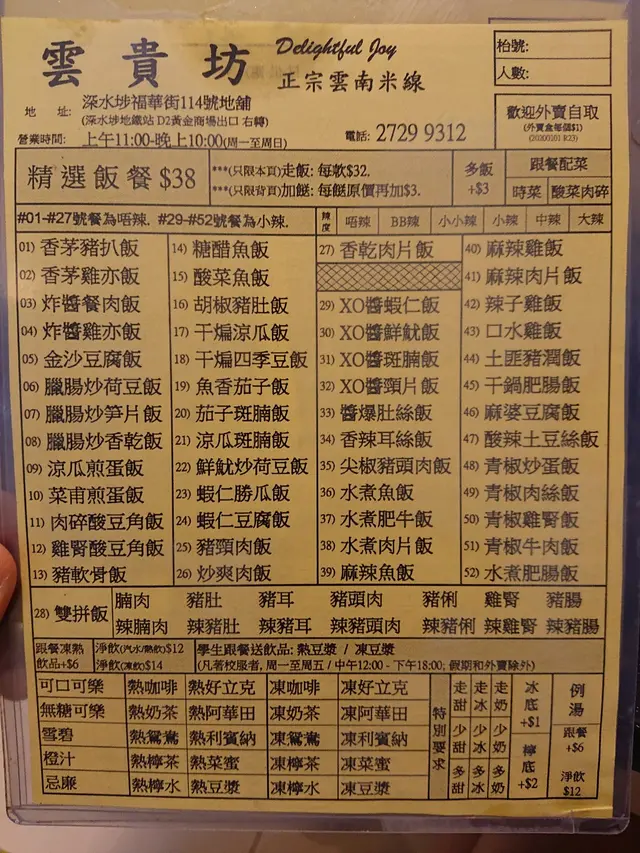 雲貴坊
Delightful Joy
正宗雲南米線
枱號:
人數:
地 址: 深水埗福華街114號地舖
(深水埗地鐵站 D2黃金商場出口 右轉)
營業時間: 上午11:00-晚上10:00(周一至周日)
電話: 2729 9312
歡迎外賣自取
(外賣盒每個$1)
(20200101 R23)
精選飯餐 $38
***(只限本頁)走飯: 每款$32.
***(只限背頁)加餸: 每餸原價再加$3.
多飯
+$3
跟餐配菜
時菜 酸菜肉碎
#01-#27號餐為唔辣. #29-#52號餐為小辣.
辣度 唔辣 BB辣 小小辣 小辣 中辣 大辣
01) 香茅豬扒飯
02) 香茅雞亦飯
03) 炸醬餐肉飯
04) 炸醬雞亦飯
05) 金沙豆腐飯
06) 臘腸炒荷豆飯
07) 臘腸炒笋片飯
08) 臘腸炒香乾飯
09) 涼瓜煎蛋飯
10) 菜甫煎蛋飯
11) 肉碎酸豆角飯
12) 雞腎酸豆角飯
13) 豬軟骨飯
14) 糖醋魚飯
15) 酸菜魚飯
16) 胡椒豬肚飯
17) 干煸涼瓜飯
18) 干煸四季豆飯
19) 魚香茄子飯
20) 茄子斑腩飯
21) 涼瓜斑腩飯
22) 鮮魷炒荷豆飯
23) 蝦仁勝瓜飯
24) 蝦仁豆腐飯
25) 豬頸肉飯
26) 炒爽肉飯
27) 香乾肉片飯
29) XO醬蝦仁飯
30) XO醬鮮魷飯
31) XO醬斑腩飯
32) XO醬頸片飯
33) 醬爆肚絲飯
34) 香辣耳絲飯
35) 尖椒豬頭肉飯
36) 水煮魚飯
37) 水煮肥牛飯
38) 水煮肉片飯
39) 麻辣魚飯
40) 麻辣雞飯
41) 麻辣肉片飯
42) 辣子雞飯
43) 口水雞飯
44) 土匪豬潤飯
45) 干鍋肥腸飯
46) 麻婆豆腐飯
47) 酸辣土豆絲飯
48) 青椒炒蛋飯
49) 青椒肉絲飯
50) 青椒雞腎飯
51) 青椒牛肉飯
52) 水煮肥腸飯
28) 雙拼飯
腩肉 豬肚 豬耳 豬頭肉 豬俐 雞腎 豬腸
辣腩肉 辣豬肚 辣豬耳 辣豬頭肉 辣豬俐 辣雞腎 辣豬腸
跟餐凍熱
飲品+$6
淨飲(汽水/熱飲)$12
淨飲(凍飲)$14
學生跟餐送飲品: 熱豆漿 / 凍豆漿
(凡著校服者, 周一至周五 / 中午12:00 - 下午18:00; 假期和外賣除外)
可口可樂 熱咖啡 熱好立克 凍咖啡 凍好立克
無糖可樂 熱奶茶 熱阿華田 凍奶茶 凍阿華田
雪碧 熱鴛鴦 熱利賓納 凍鴛鴦 凍利賓納
橙汁 熱檸茶 熱菜蜜 凍檸茶 凍菜蜜
忌廉 熱檸水 熱豆漿 凍檸水 凍豆漿
特別要求
走甜 走冰 走奶
少甜 少冰 少奶
多甜 多冰 多奶
冰底
+$1
檸底
+$2
例湯
跟餐
+$6
淨飲
$12